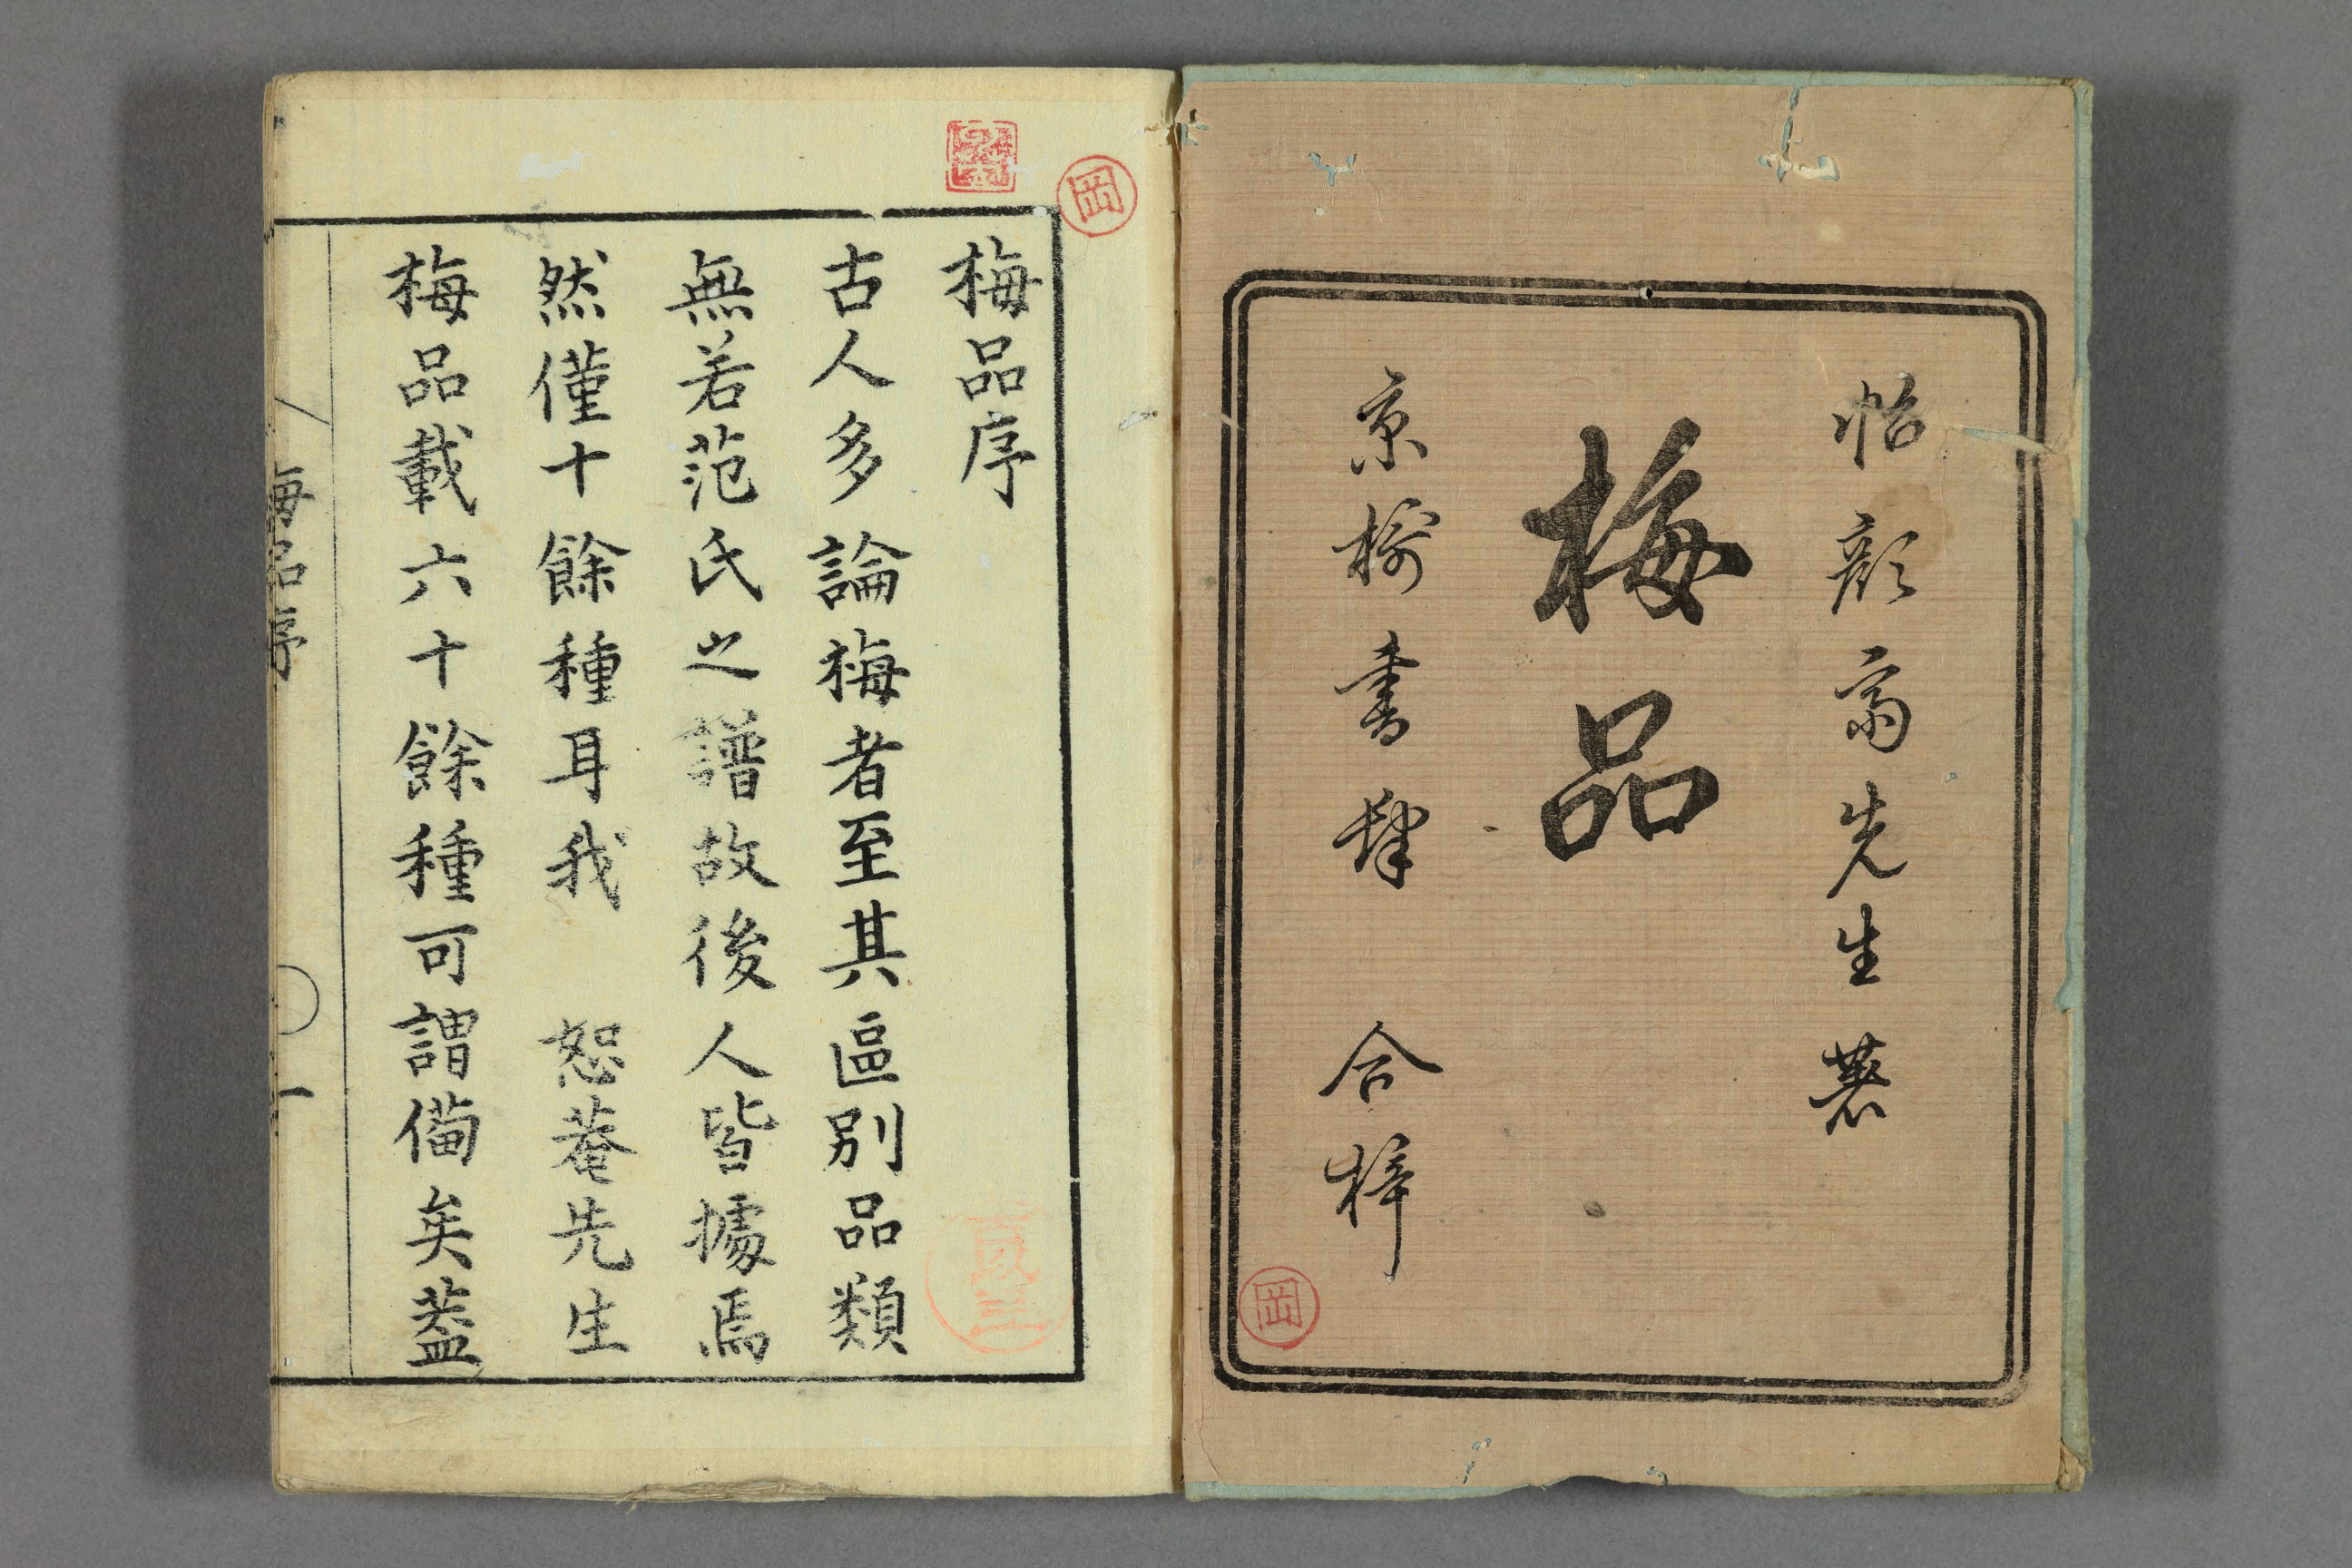 怡顔斎先生著
梅品
京攝書肆 合梓
岡
岡
梅品序
古人多論梅者至其區別品類
無若范氏之譜故後人皆據焉
然僅十餘種耳我 恕菴先生
梅品載六十餘種可謂備矣葢
梅品序
一